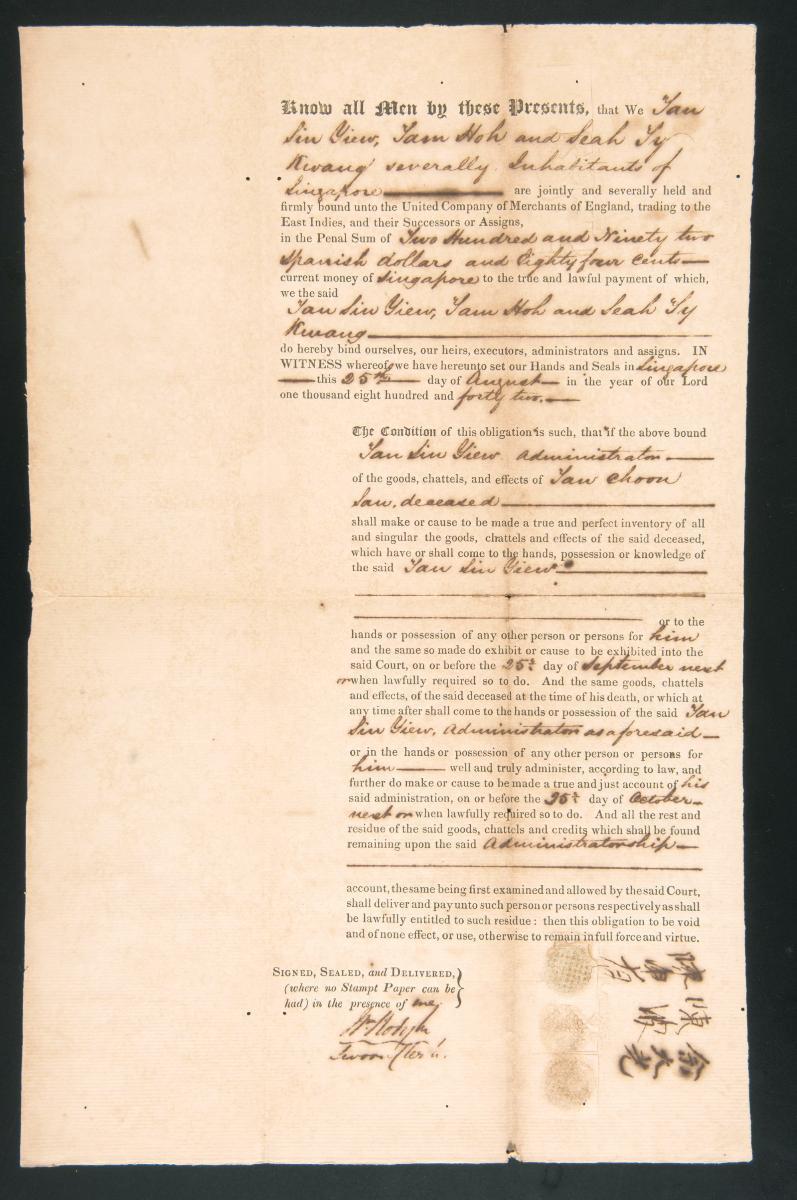 Know all Men by these Presents, that We Tan
Sin Yiew, Tam Hoh and Seah Sy
Kwang severally Inhabitants of
Singapore are jointly and severally held and
firmly bound unto the United Company of Merchants of England, trading to the
East Indies, and their Successors or Assigns,
in the Penal Sum of Two Hundred and Ninety two
Spanish dollars and Eighty four cents
current money of Singapore to the true and lawful payment of which,
we the said
Tan Sin Yiew, Tam Hoh and Seah Sy
Kwang
do hereby bind ourselves, our heirs, executors, administrators and assigns. IN
WITNESS whereof we have hereunto set our Hands and Seals in Singapore
this 25th day of August in the year of our Lord
one thousand eight hundred and forty two.
The Condition of this obligation is such, that if the above bound
Tan Sin Yiew Administrator
of the goods, chattels, and effects of Tan Choon
San, deceased
shall make or cause to be made a true and perfect inventory of all
and singular the goods, chattels and effects of the said deceased,
which have or shall come to the hands, possession or knowledge of
the said Tan Sin Yiew
or to the
hands or possession of any other person or persons for him
and the same so made do exhibit or cause to be exhibited into the
said Court, on or before the 25th day of September next
or when lawfully required so to do. And the same goods, chattels
and effects, of the said deceased at the time of his death, or which at
any time after shall come to the hands or possession of the said Tan
Sin Yiew, Administrator as aforesaid
or in the hands or possession of any other person or persons for
him well and truly administer, according to law, and
further do make or cause to be made a true and just account of his
said administration, on or before the 25th day of October
next or when lawfully required so to do. And all the rest and
residue of the said goods, chattels and credits which shall be found
remaining upon the said Administratorship
account, the same being first examined and allowed by the said Court,
shall deliver and pay unto such person or persons respectively as shall
be lawfully entitled to such residue : then this obligation to be void
and of none effect, or use, otherwise to remain in full force and virtue.
SIGNED, SEALED, and DELIVERED,
(where no Stampt Paper can be
had) in the presence of me,